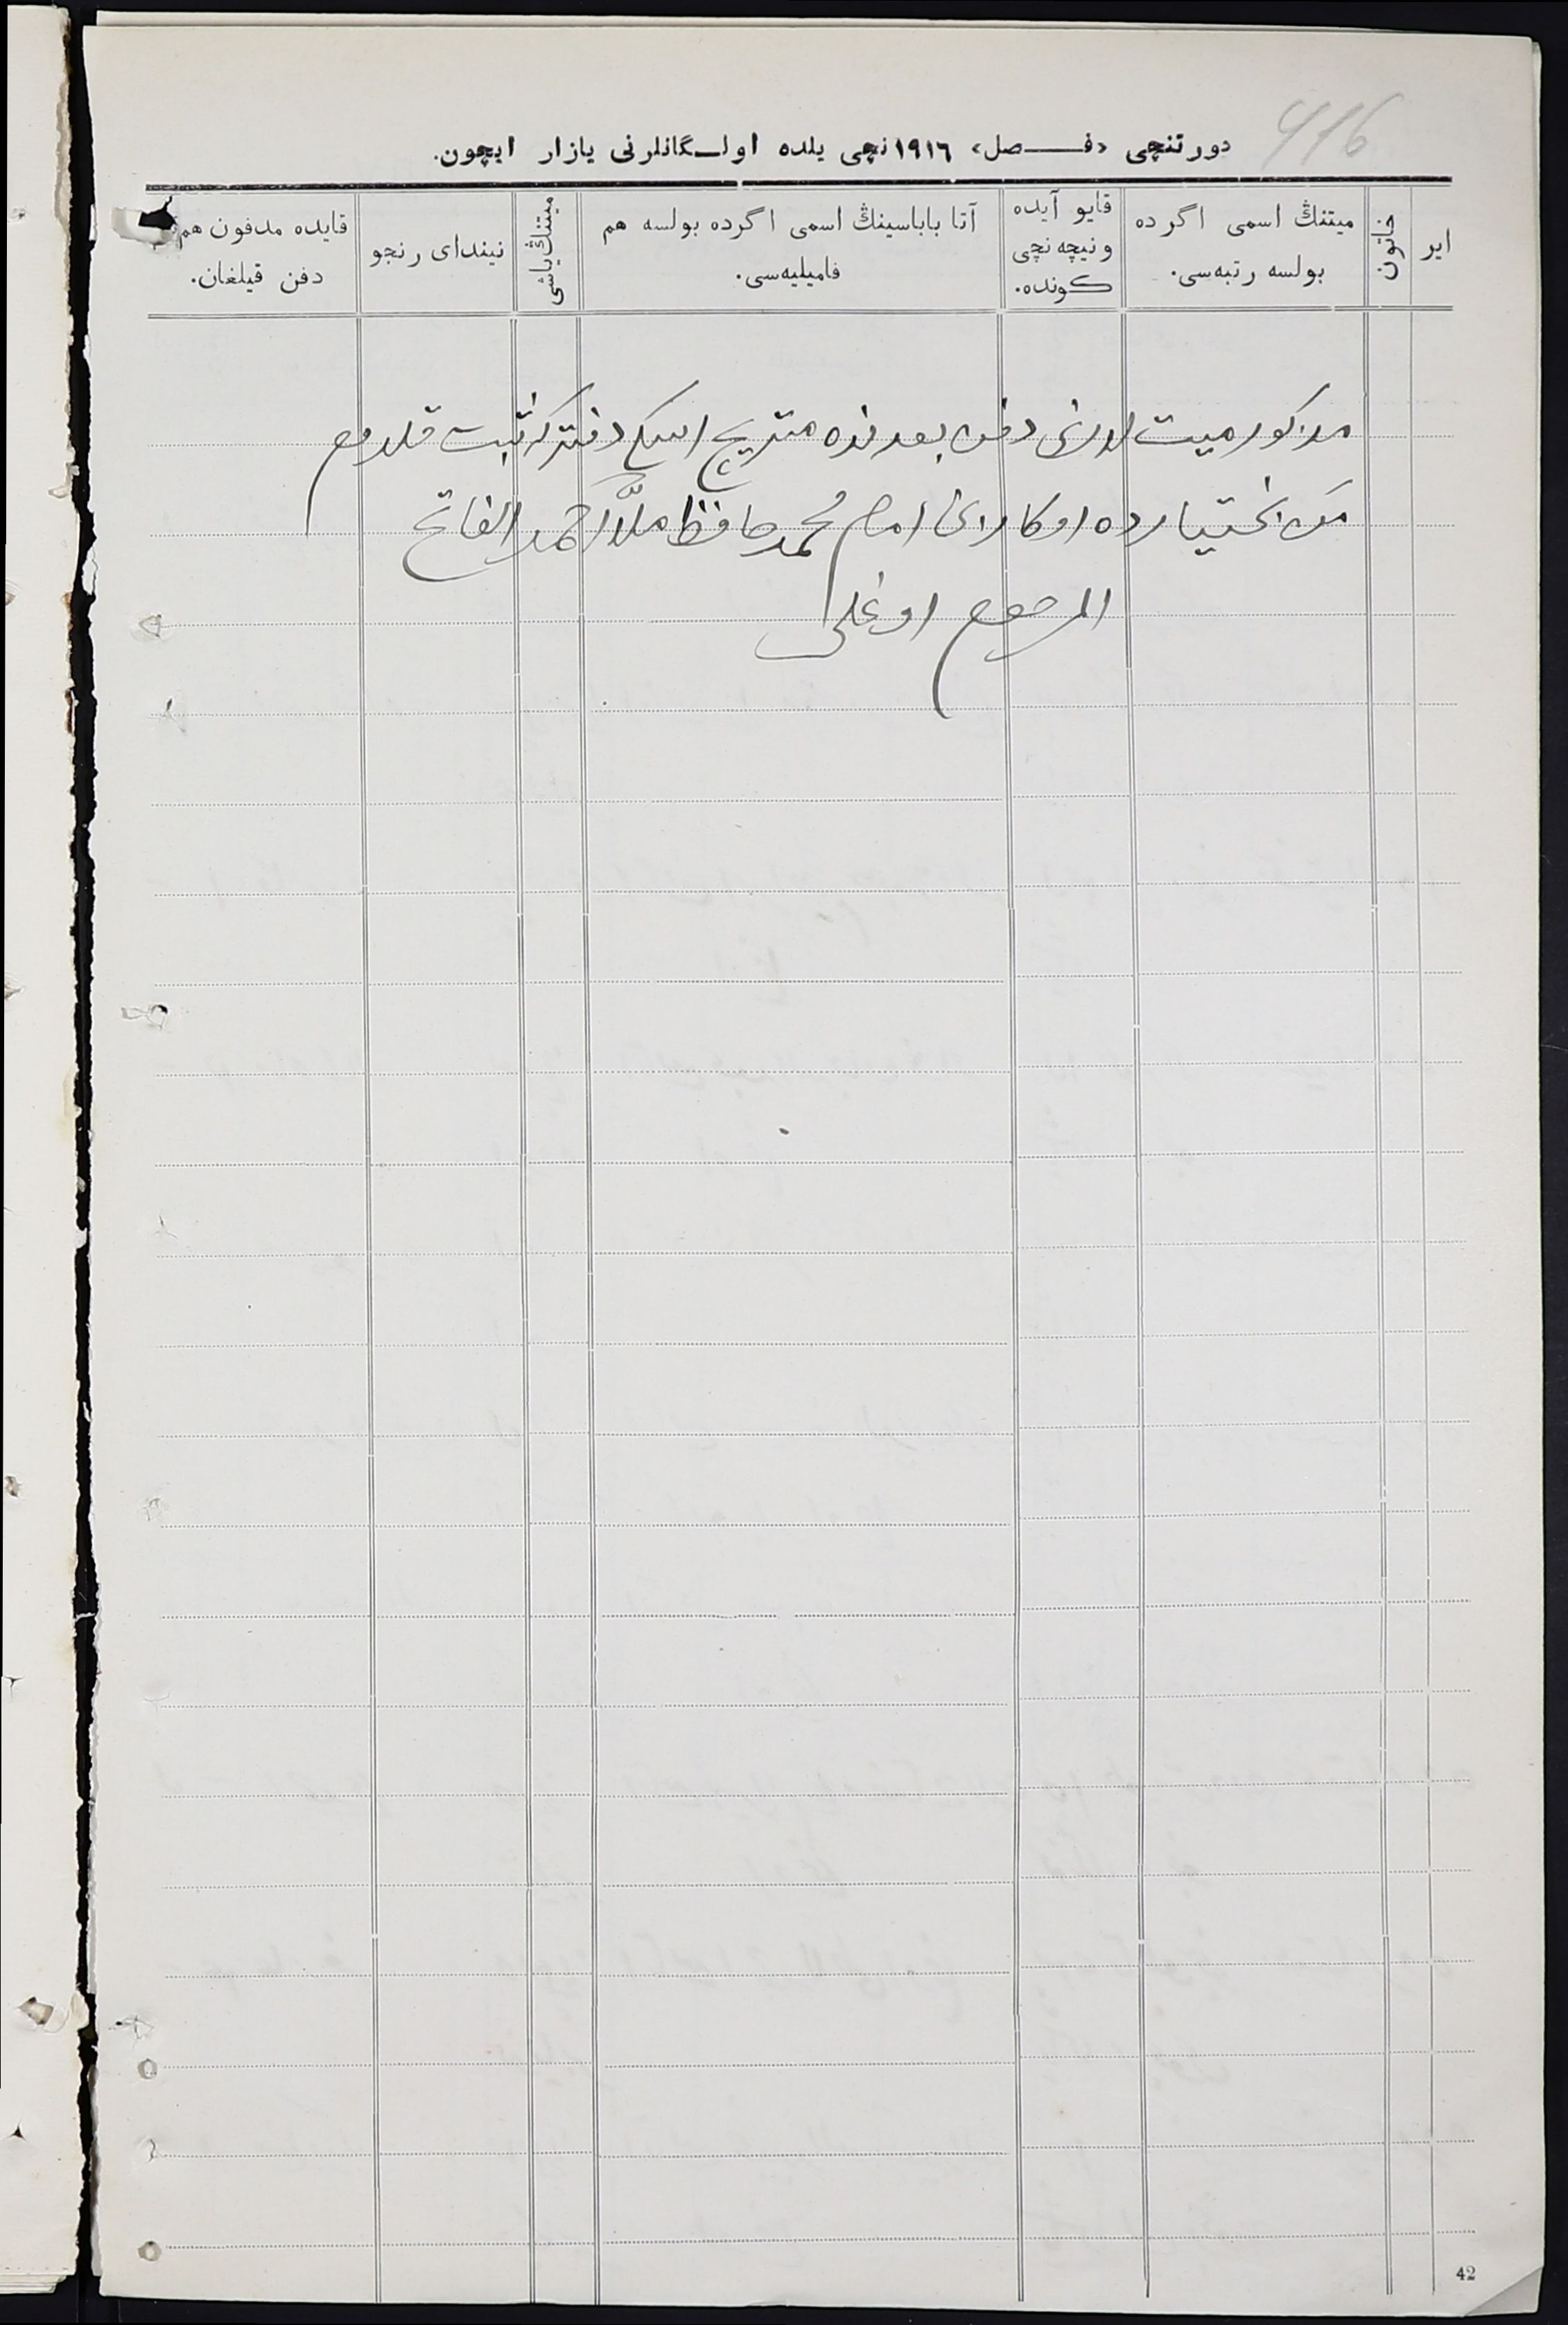 416
دورتنچی «فصل» ١٩١٦ نچی یلده اولگانلرنی یازار ایچون.
ایر
خاتون
میتنڭ اسمی اگرده
بولسه رتبه‌سی.
قایو آیده
ونیچه نچی
کونده.
آتا باباسینڭ اسمی اگرده بولسه هم
فامیلیه‌سی.
میتنڭ یاشی
نیندای رنجو
قایده مدفون هم
دفن قیلغان.
مذکور میت لارنی دفن بعدنده دفترکه ثبت قلدم
اختیارده امام محمد حافظ ملا احمد الفاتح
المرحوم اوغلی
42